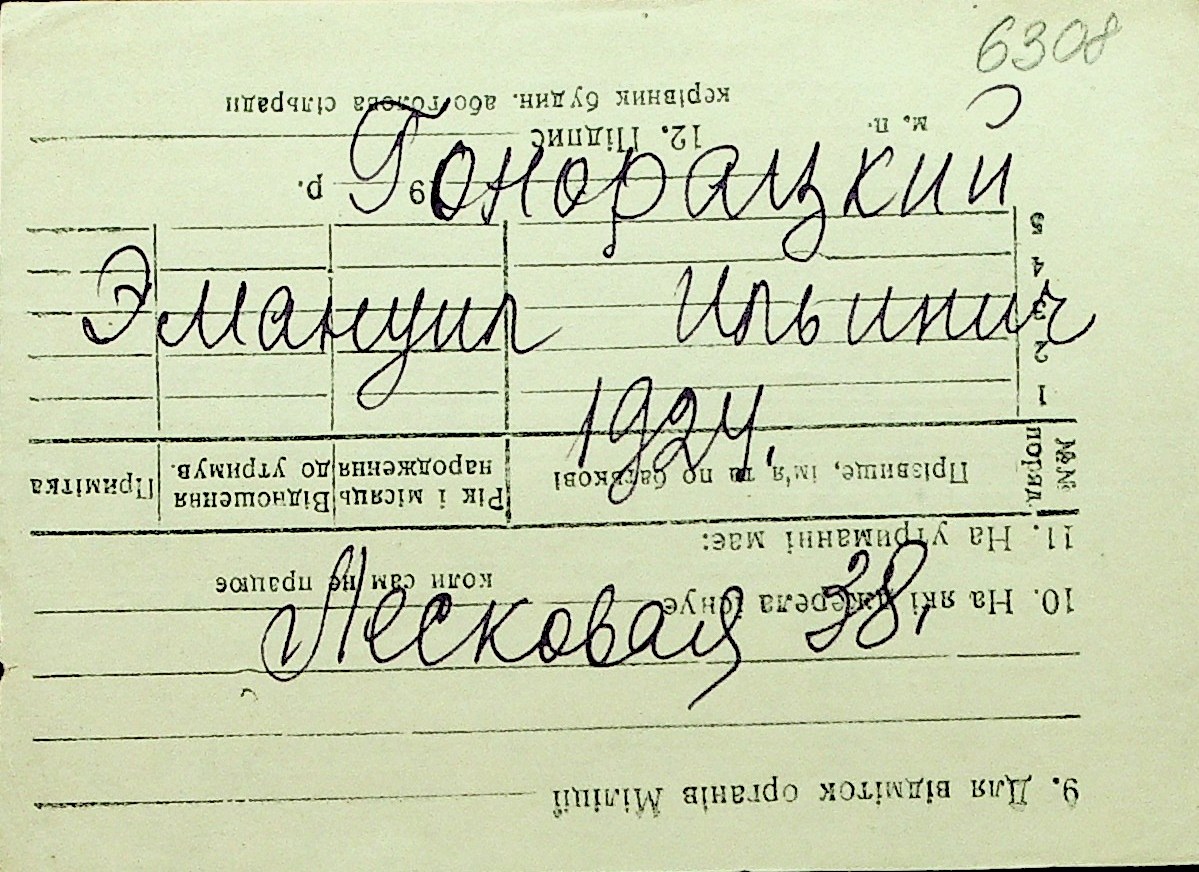 6308
Гонорацкий
Эмануил Ильинич
1924.
Лесковая 38,
9. Для відміток органів Міліції
10. На які джерела існує
коли сам не працює
11. На утриманні має:
№№ поряд.
Прізвище, ім'я та по батькові
Рік і місяць народження
Відношення до утримув.
Примітка
1
2
3
4
5
9 р.
м. п.
12. Підпис
керівник будин. або голова сільради